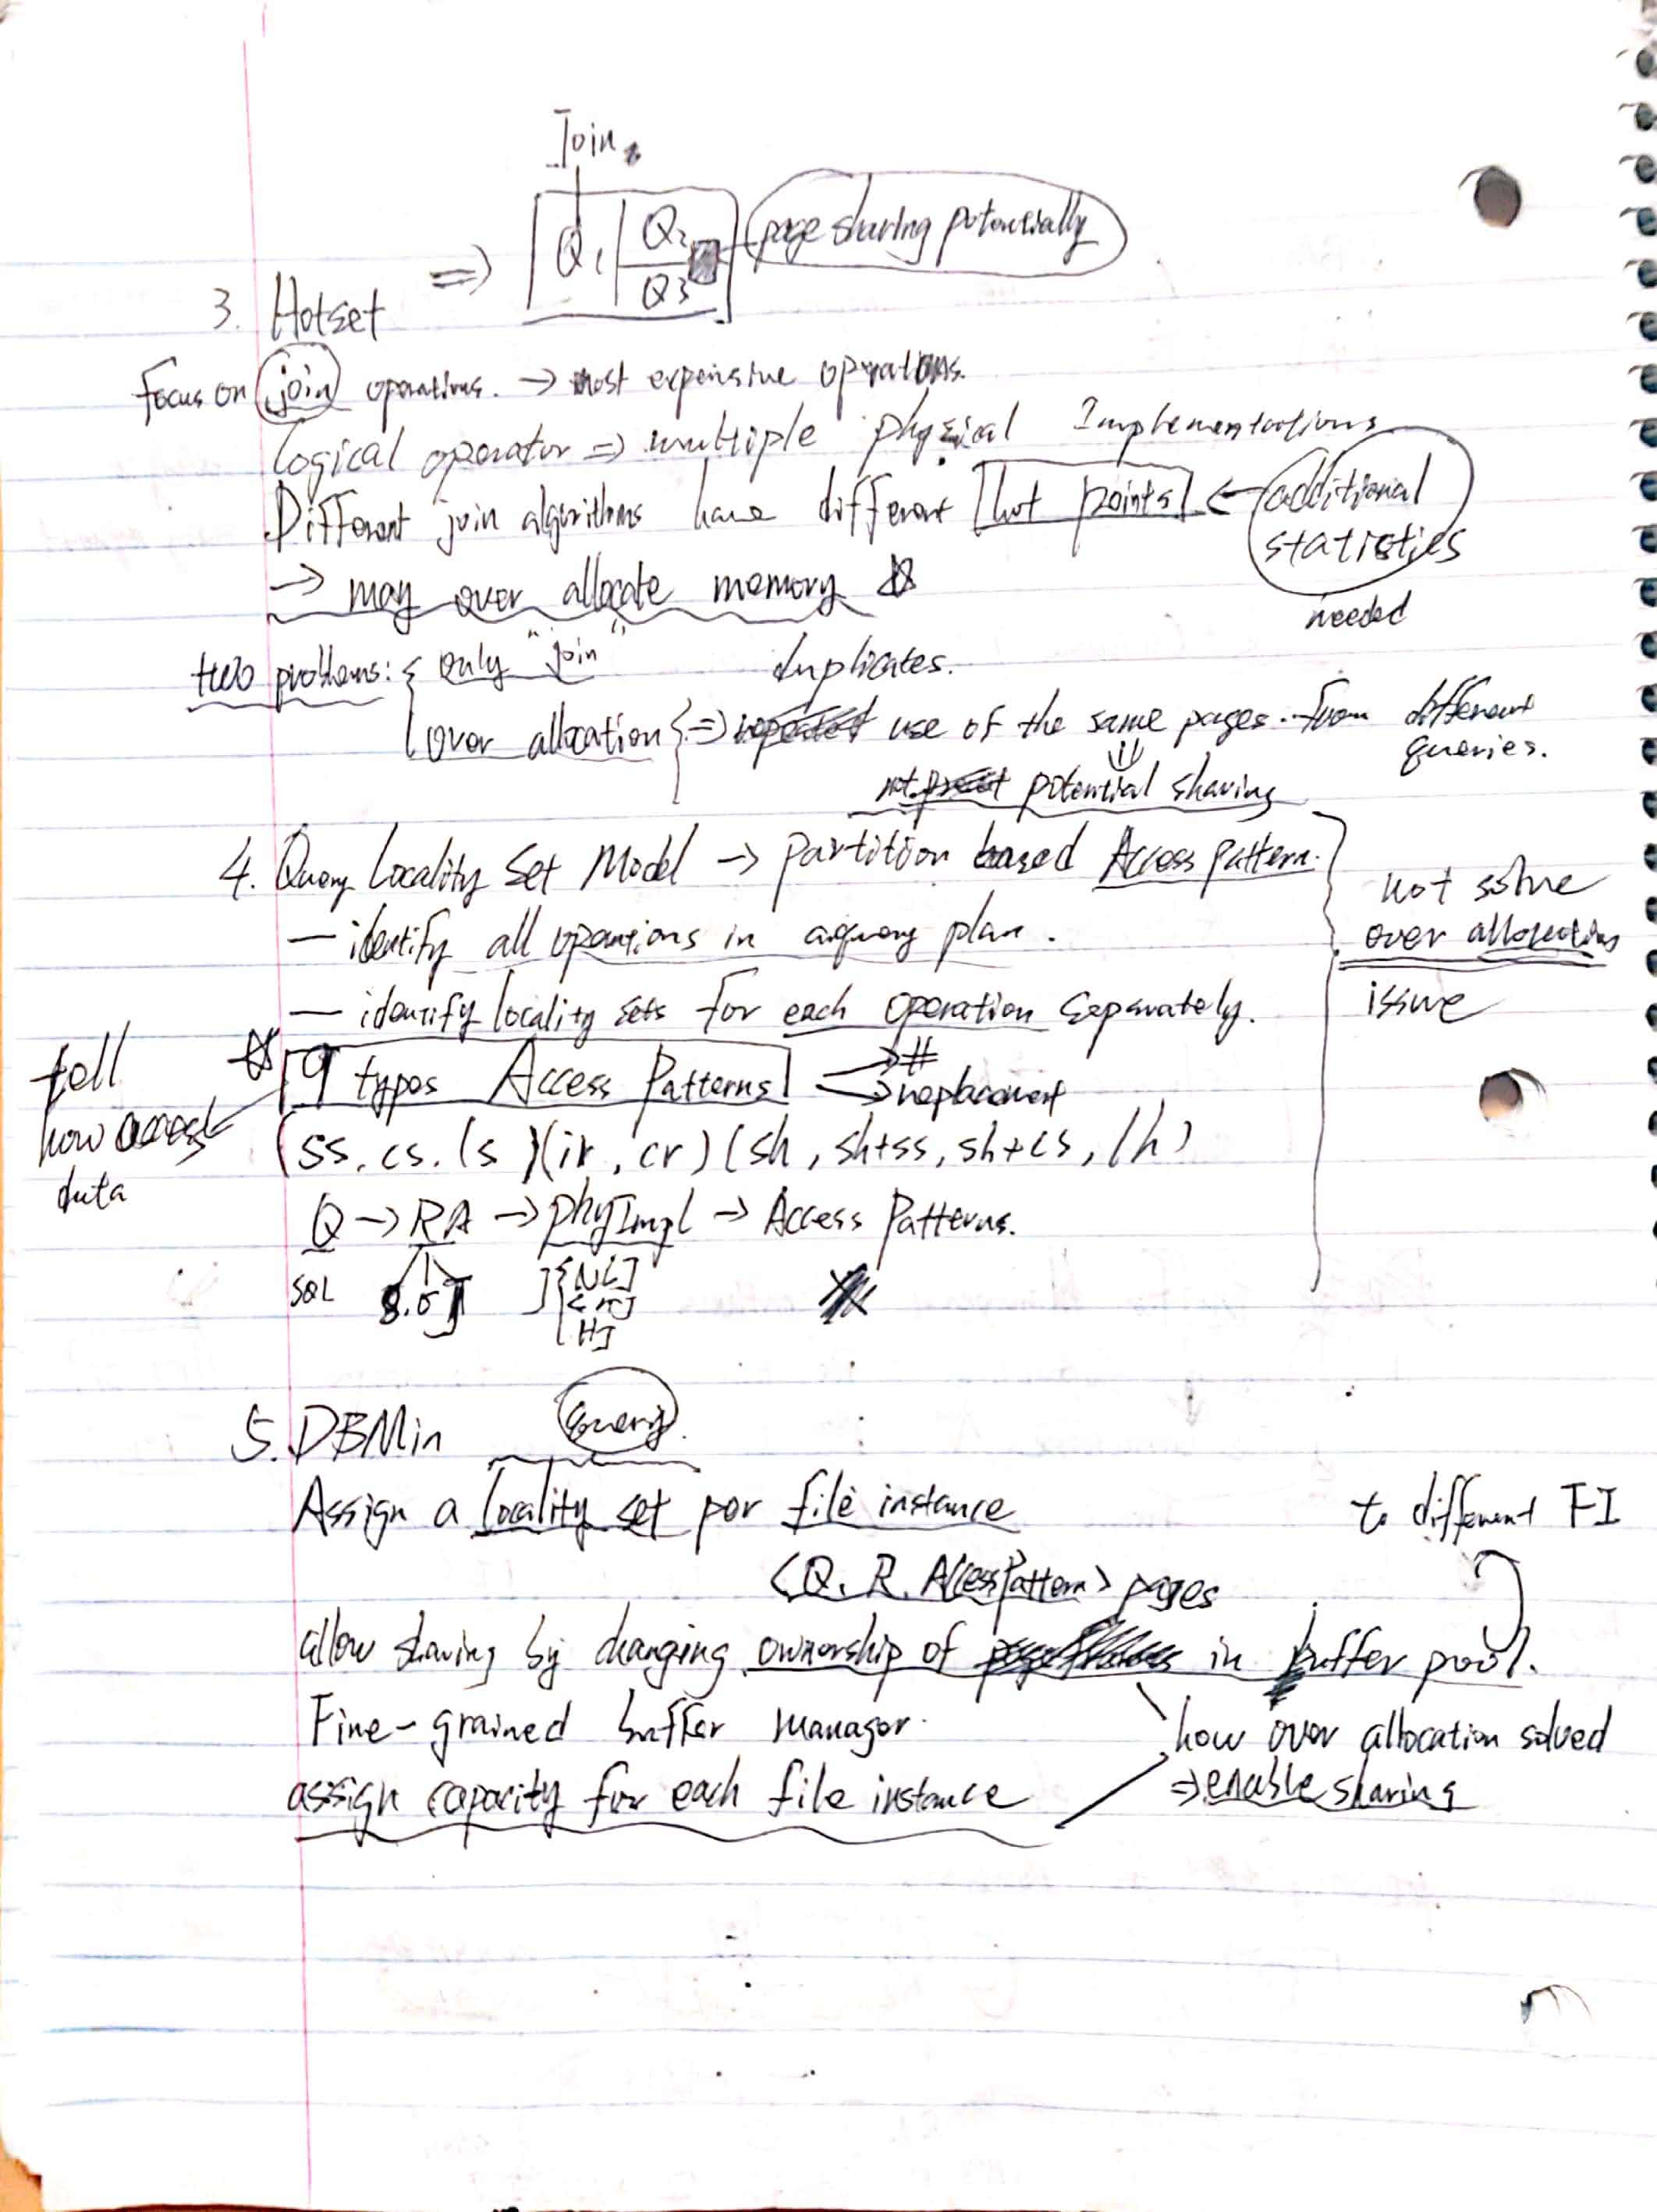 Join
Q1 Q2 page sharing potentially
Q3
3. Hotset ⇒
Focus on join operations. → most expensive operations.
Logical operator ⇒ multiple physical Implementations
Different join algorithms have different hot points ← additional
statistics
needed
→ may over allocate memory ☆
two problems: { only "join"
over allocation } ⇒ duplicates. use of the same pages. from different
queries.
⇓
not potential sharing
4. Query Locality Set Model → partition based Access pattern.
— identify all operations in a query plan.
— identify locality sets for each operation separately.
not solve
over allocation
issue
☆ 9 types Access Patterns → #
→ replacement
tell
how access
data
(ss, cs, ls)(ir, cr)(sh, sh+ss, sh+cs, lh)
Q → RA → phyImpl → Access Patterns.
SQL
NLJ
HJ
5. DBMin query
Assign a locality set per file instance
<Q, R, AccessPattern> pages
to different FI
allow sharing by changing ownership of in buffer pool.
Fine-grained buffer manager.
assign capacity for each file instance
how over allocation solved
⇒ enable sharing